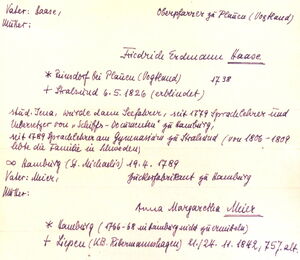 Vater: Haase, Oberpfarrer zu Plauen (Vogtland)
Mutter:
Friedrich Erdmann Haase
* Reinsdorf bei Plauen (Vogtland) 1738
+ Stralsund 6.5.1826 (erblindet)
stud. Jena, wurde dann Seefahrer, seit 1779 Sprachlehrer und
Übersetzer von "Schiffs-Documenten" zu Hamburg,
seit 1789 Sprachlehrer am Gymnasium zu Stralsund (von 1806-1809
lebte die Familie in Schweden)
∞ Hamburg (St. Michaelis) 19.4.1789
Vater: Meier, Zuckerfabrikant zu Hamburg
Mutter:
Anna Margaretha Meier
* Hamburg (1766-68 in Hamburg nicht zu ermitteln)
+ Liepen (KB. Rakow) 21./24. 11. 1842, 75 J. alt.